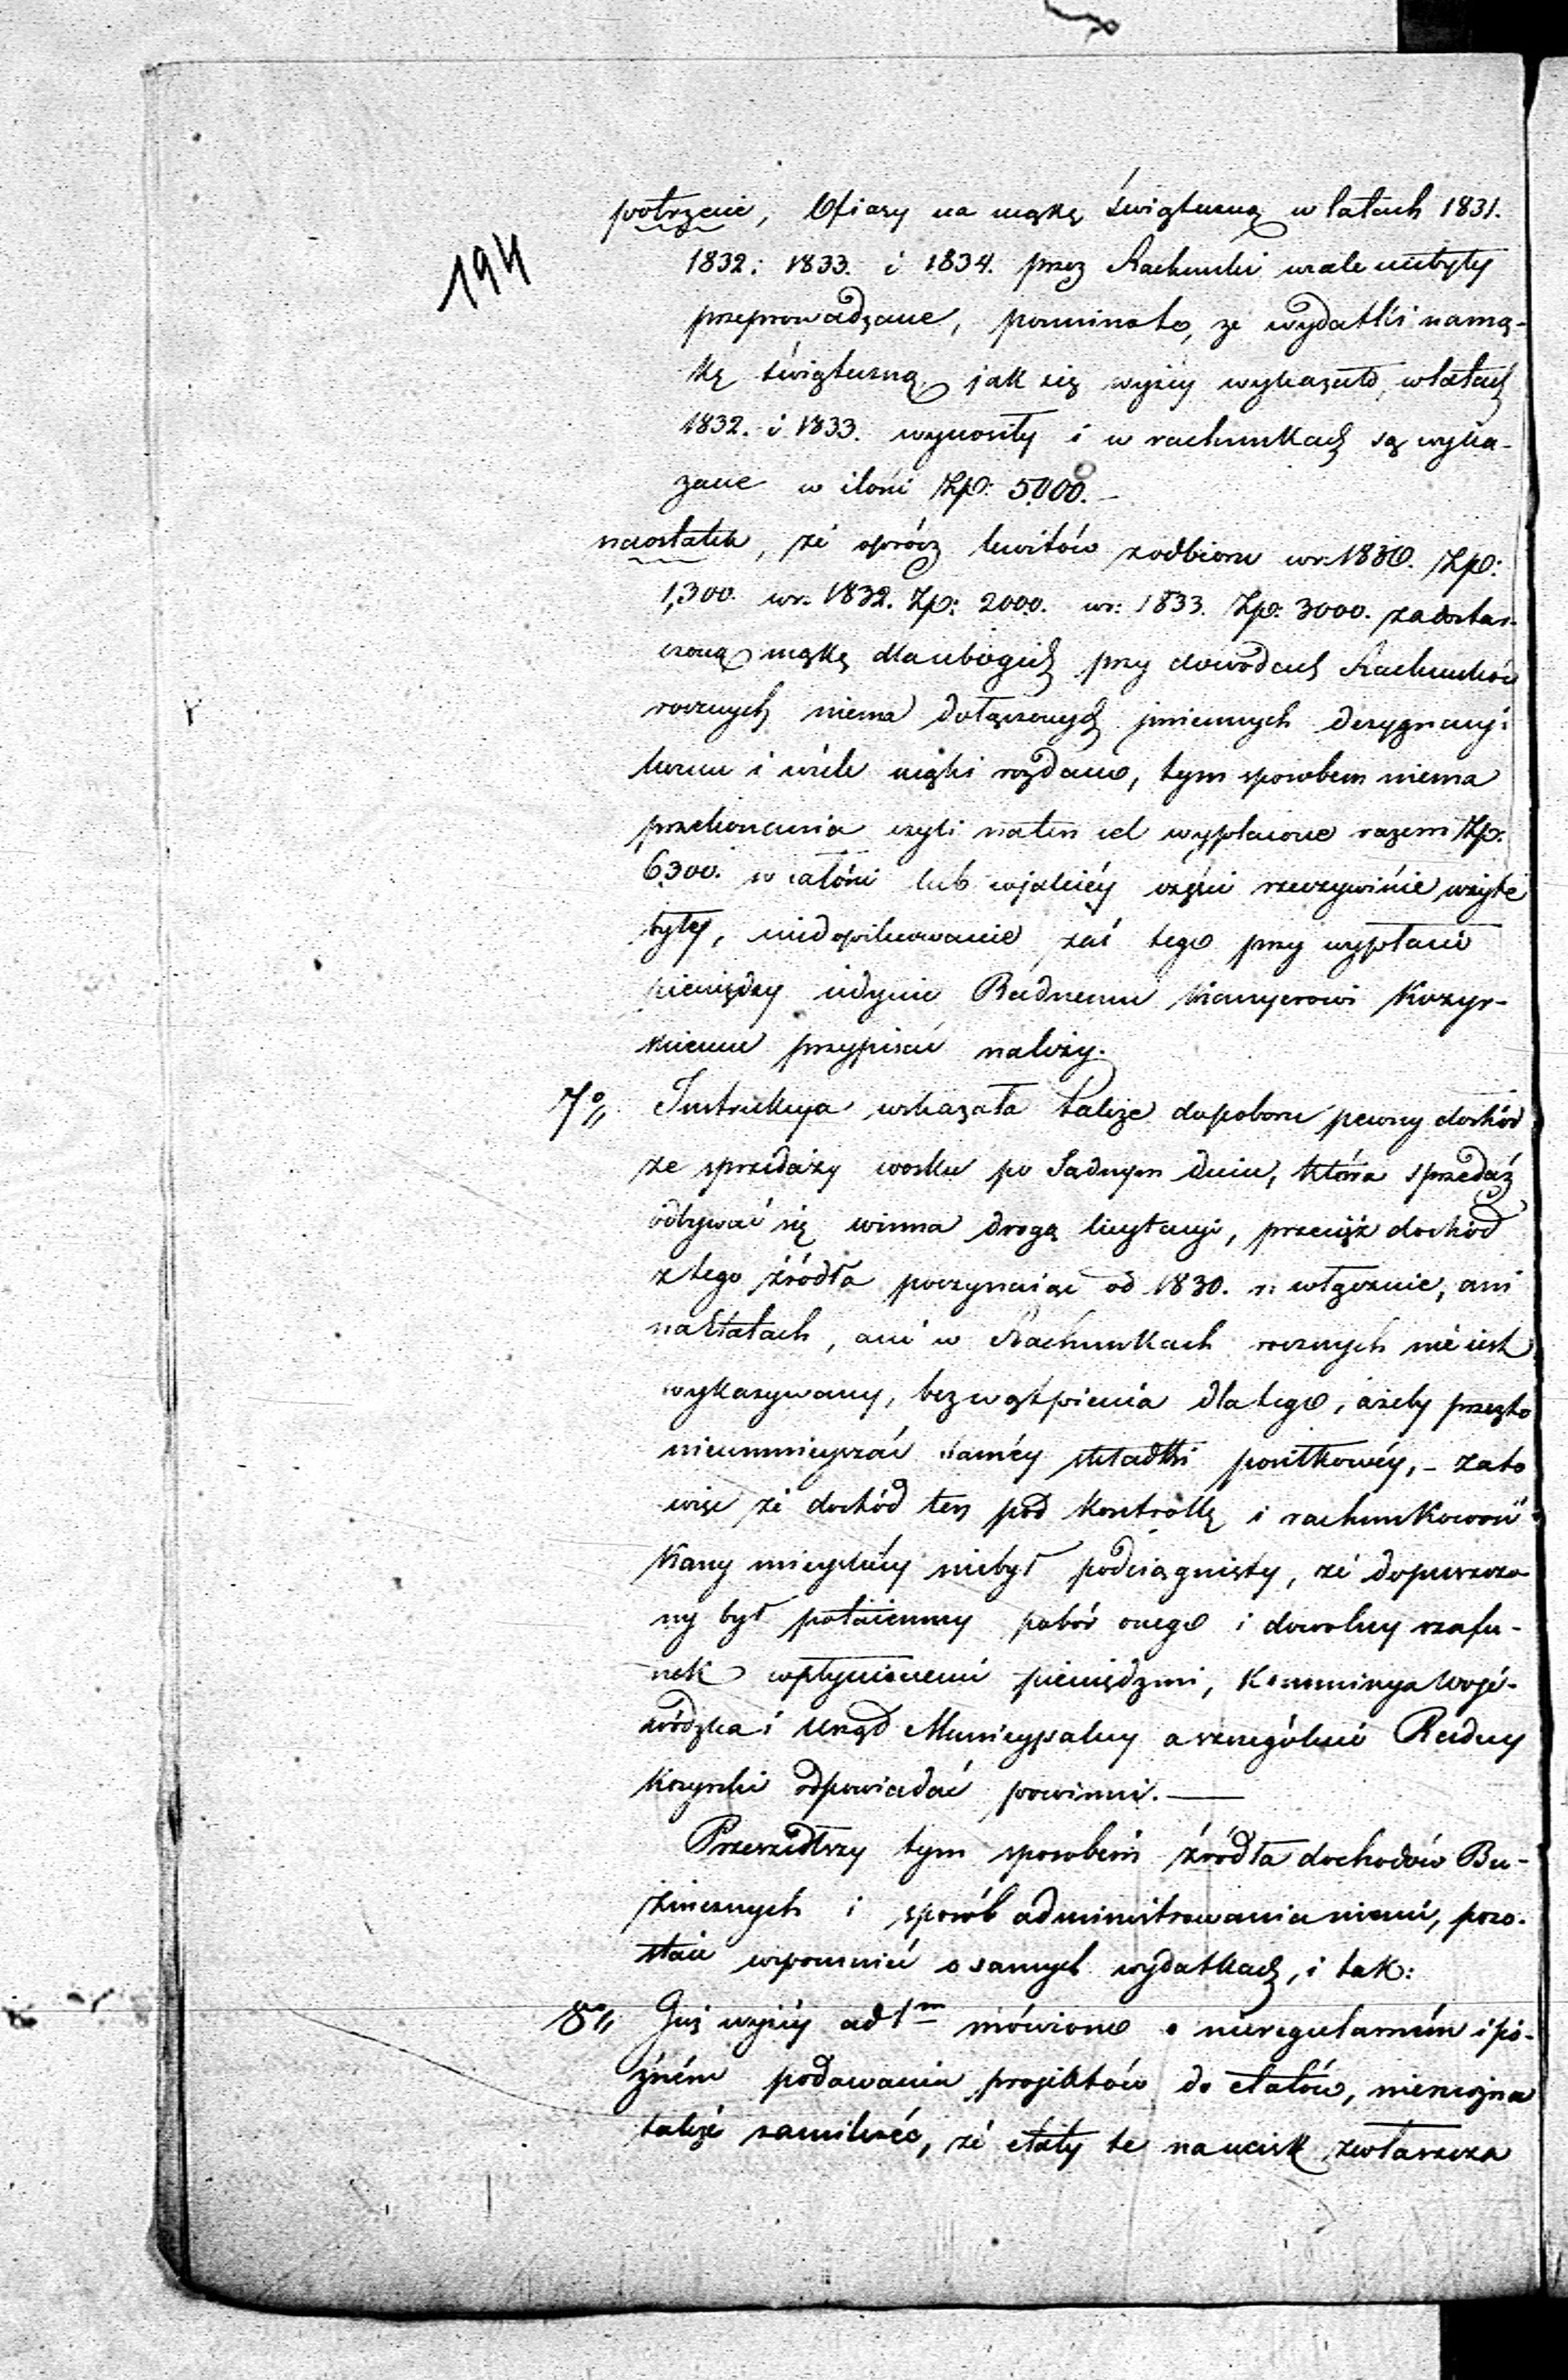 194
potrzecie, Ofiary na mąkę świąteczną w latach 1831.
1832: 1833. i 1834. przez Rachunki wcale niebyły
przeprowadzane, pomimo to, że wydatki na mą-
kę świąteczną jak się wyżey wykazało, w latach
1832. i 1833. wynosiły i w rachunkach są wyka-
zane w ilości Złp: 5000.—
naostatek, że oprócz kwitów z odbioru w r. 1830. Złp:
1,300. w r. 1832. Złp: 2000. w r: 1833. Złp: 3000. za dostar-
czoną mąkę dla ubogich przy dowodach Rachunków
rocznych niema dołączonych imiennych desygnacyi
komu i wiele mąki rozdano, tym sposobem niema
przekonania czyli na ten cel wypłacone razem Złp:
6300. w całości lub w jakiéy części rzeczywiście użyte
były, niedopilnowanie zaś tego przy wypłacie
pieniędzy iedynie Radnemu Kassyerowi Kozyr-
skiemu przypisać należy.
7o// Instrukcya wskazała także do poboru pewny dochód
ze sprzedaży wosku po Sądnym dniu, która sprzedaż
odbywać się winna drogą licytacyi, przecież dochód
z tego źródła poczynaiąc od 1830. r: włącznie, ani
na Etatach, ani w Rachunkach rocznych nie iest
wykazywany, bez wątpienia dla tego, ażeby przez to
nieumnieyszać saméy składki posiłkowéy,— za to
więc że dochód ten pod kontrollę i rachunkowość
Kassy mieyskiéy niebył podciągnięty, że dopuszczo
ny był potaiemny pobór onego i dowolny szafu-
nek wpłynionemi pieniędzmi, Kommissya Woje-
wódzka i Urząd Municypalny a szczególnie Radny
Kozyrski odpowiadać powinni.—
Przeszedłszy tym sposobem źródła dochodów Bo-
żniczych i sposób administrowania niemi, pozo-
staie wspomnieć o samych wydatkach, i tak:
8o// Już wyżéy ad 1m mówiono o nieregularném i pó-
źném podawaniu projektów do etatów, niemożna
także zamilczeć, że etaty te na ucisk zwłaszcza